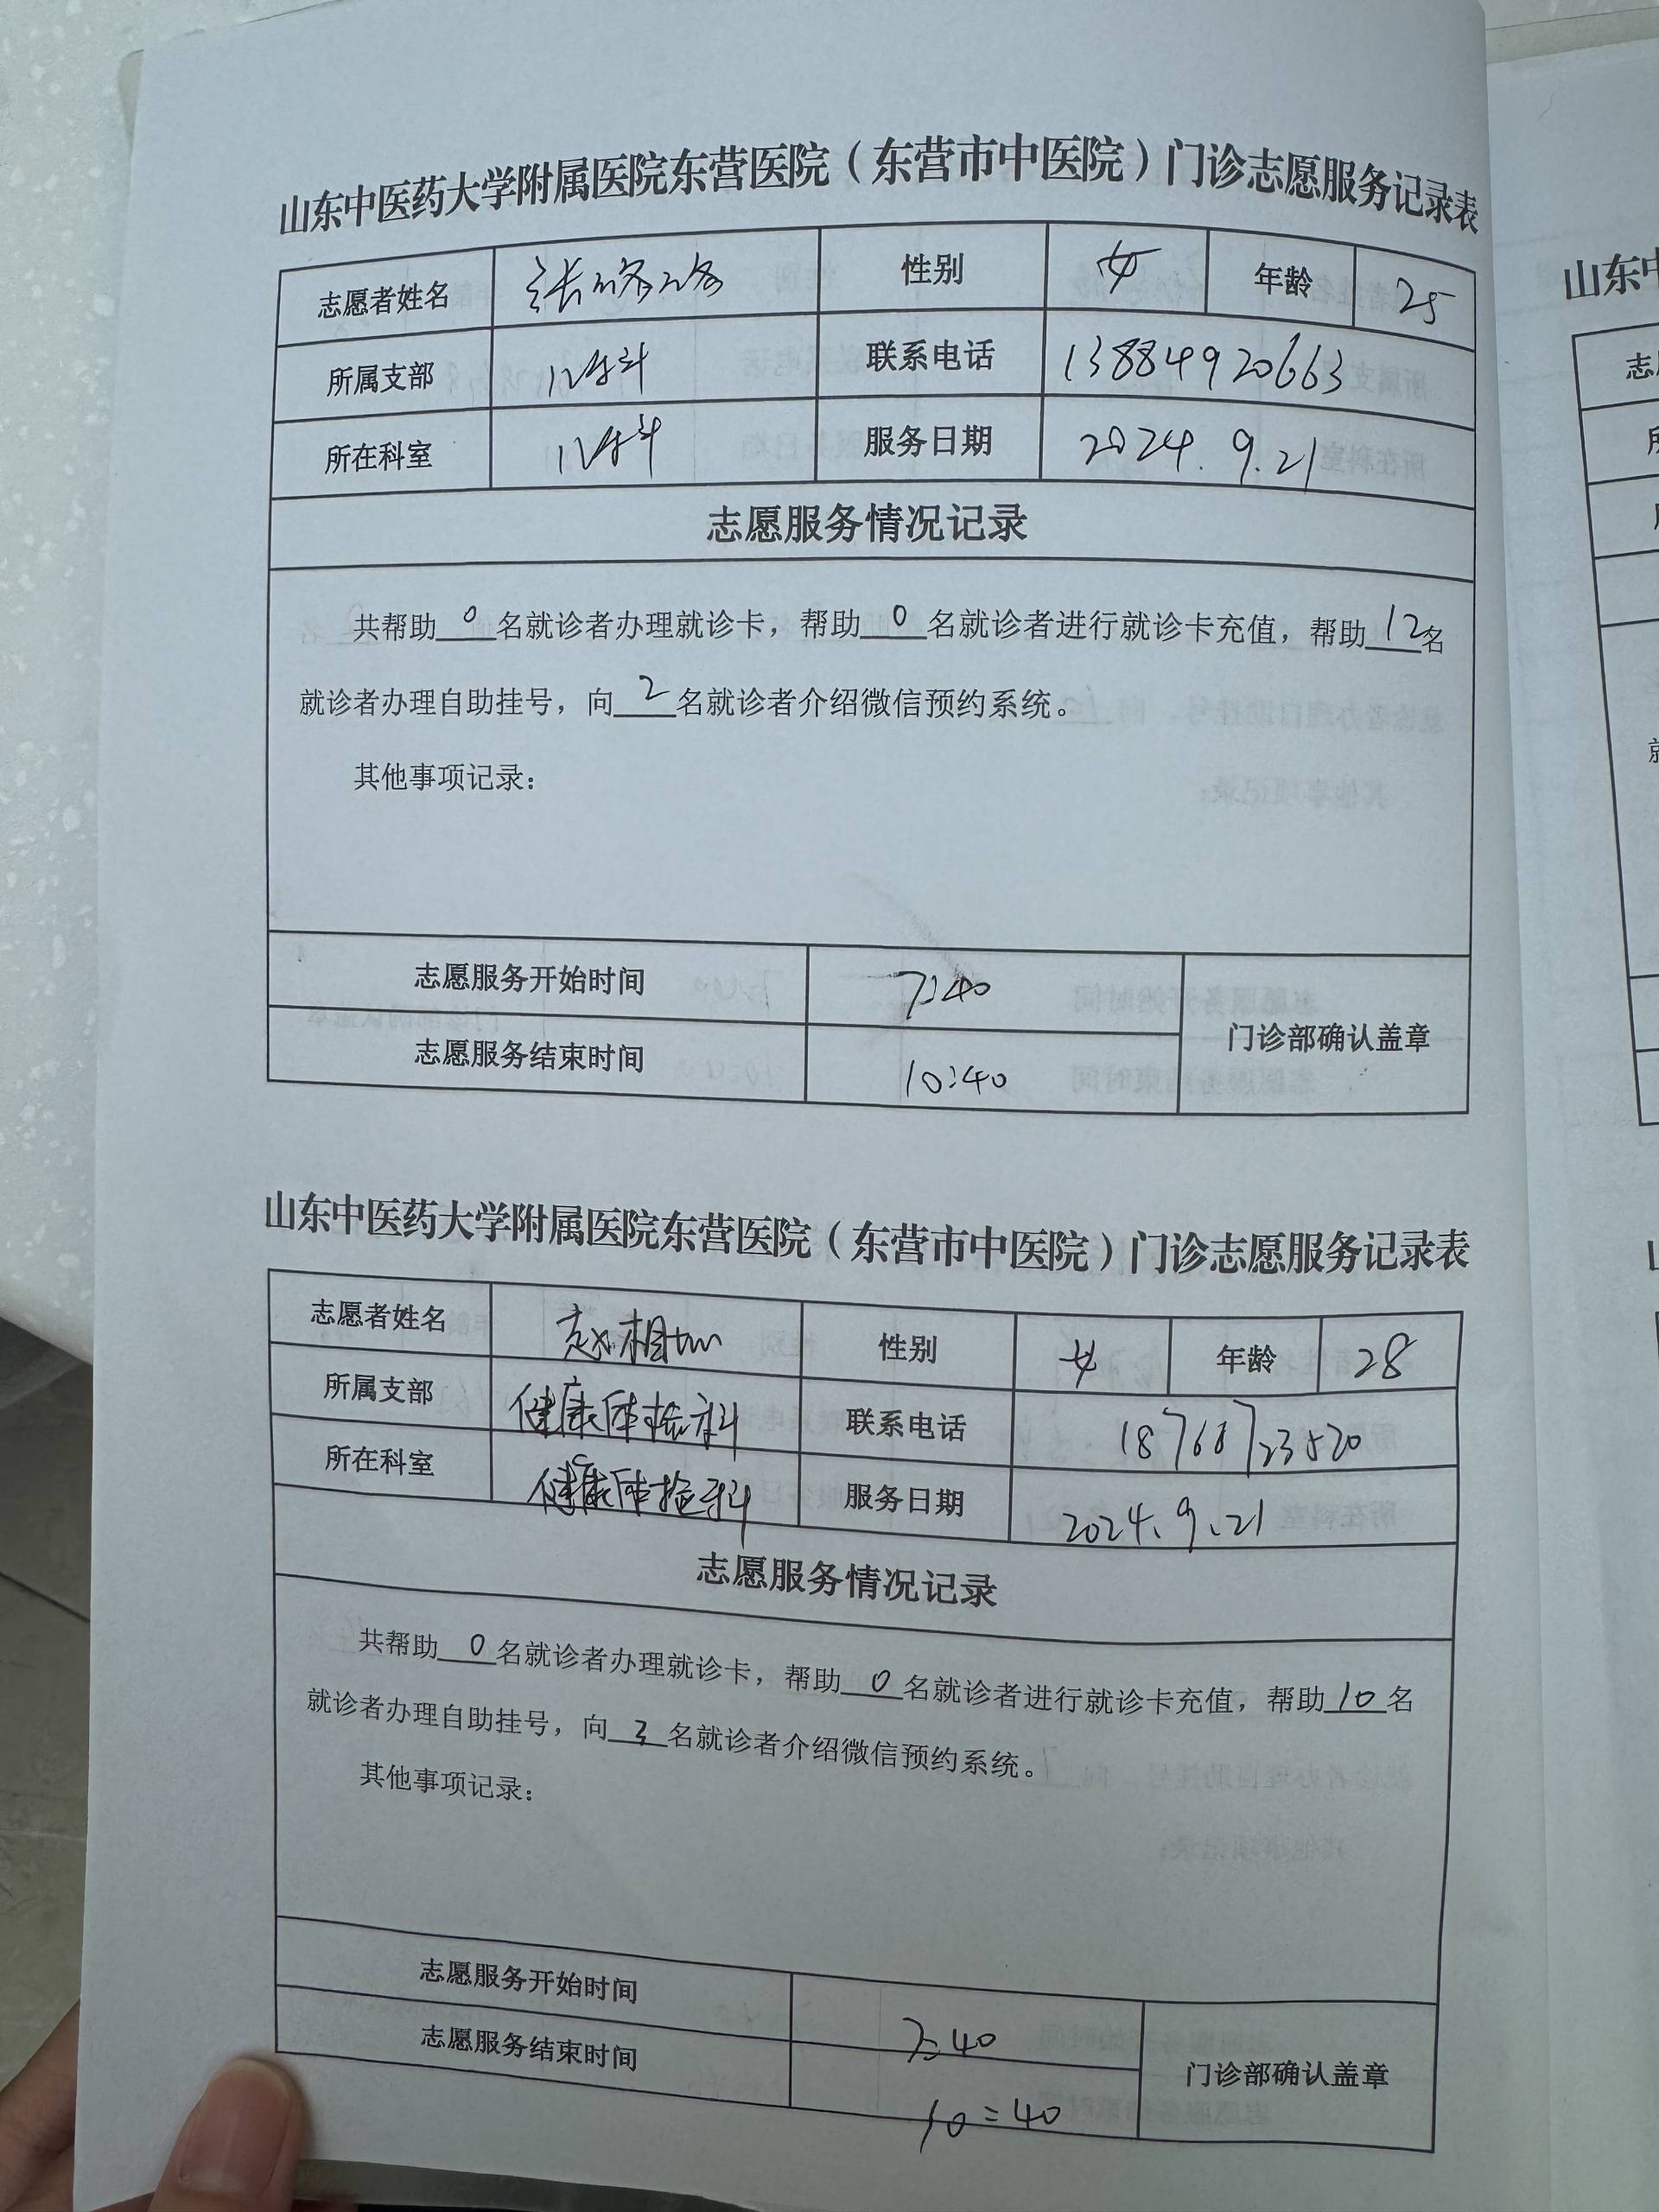 山东中医药大学附属医院东营医院（东营市中医院）门诊志愿服务记录表
志愿者姓名 张路路 性别 女 年龄 25
所属支部 儿科 联系电话 13884920663
所在科室 儿科 服务日期 2024.9.21
志愿服务情况记录
共帮助0名就诊者办理就诊卡，帮助0名就诊者进行就诊卡充值，帮助12名
就诊者办理自助挂号，向2名就诊者介绍微信预约系统。
其他事项记录：
志愿服务开始时间 7:40
门诊部确认盖章
志愿服务结束时间 10:40
山东中医药大学附属医院东营医院（东营市中医院）门诊志愿服务记录表
志愿者姓名 赵相 性别 女 年龄 28
所属支部 健康体检科 联系电话
所在科室 健康体检科 服务日期 2024、9、21
志愿服务情况记录
共帮助0名就诊者办理就诊卡，帮助0名就诊者进行就诊卡充值，帮助10名
就诊者办理自助挂号，向3名就诊者介绍微信预约系统。
其他事项记录：
志愿服务开始时间 7:40
门诊部确认盖章
志愿服务结束时间 10:40
山东中